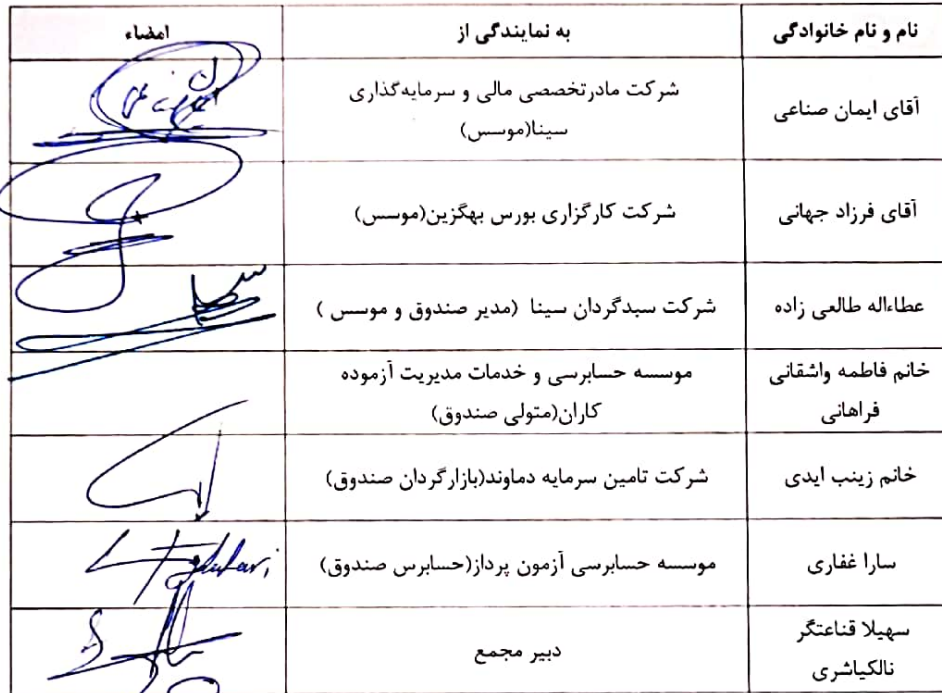 نام و نام خانوادگی	به نمایندگی از	امضاء
آقای ایمان صناعی	شرکت مادرتخصصی مالی و سرمایه‌گذاری
سینا(موسس)
آقای فرزاد جهانی	شرکت کارگزاری بورس بهگزین(موسس)
عطاءاله طالعی زاده	شرکت سبدگردان سینا (مدیر صندوق و موسس )
خانم فاطمه واشقانی	موسسه حسابرسی و خدمات مدیریت آزموده
فراهانی	کاران(متولی صندوق)
خانم زینب ایدی	شرکت تامین سرمایه دماوند(بازارگردان صندوق)
سارا غفاری	موسسه حسابرسی آزمون پرداز(حسابرس صندوق)
سهیلا قناعتگر
نالکیاشری	دبیر مجمع